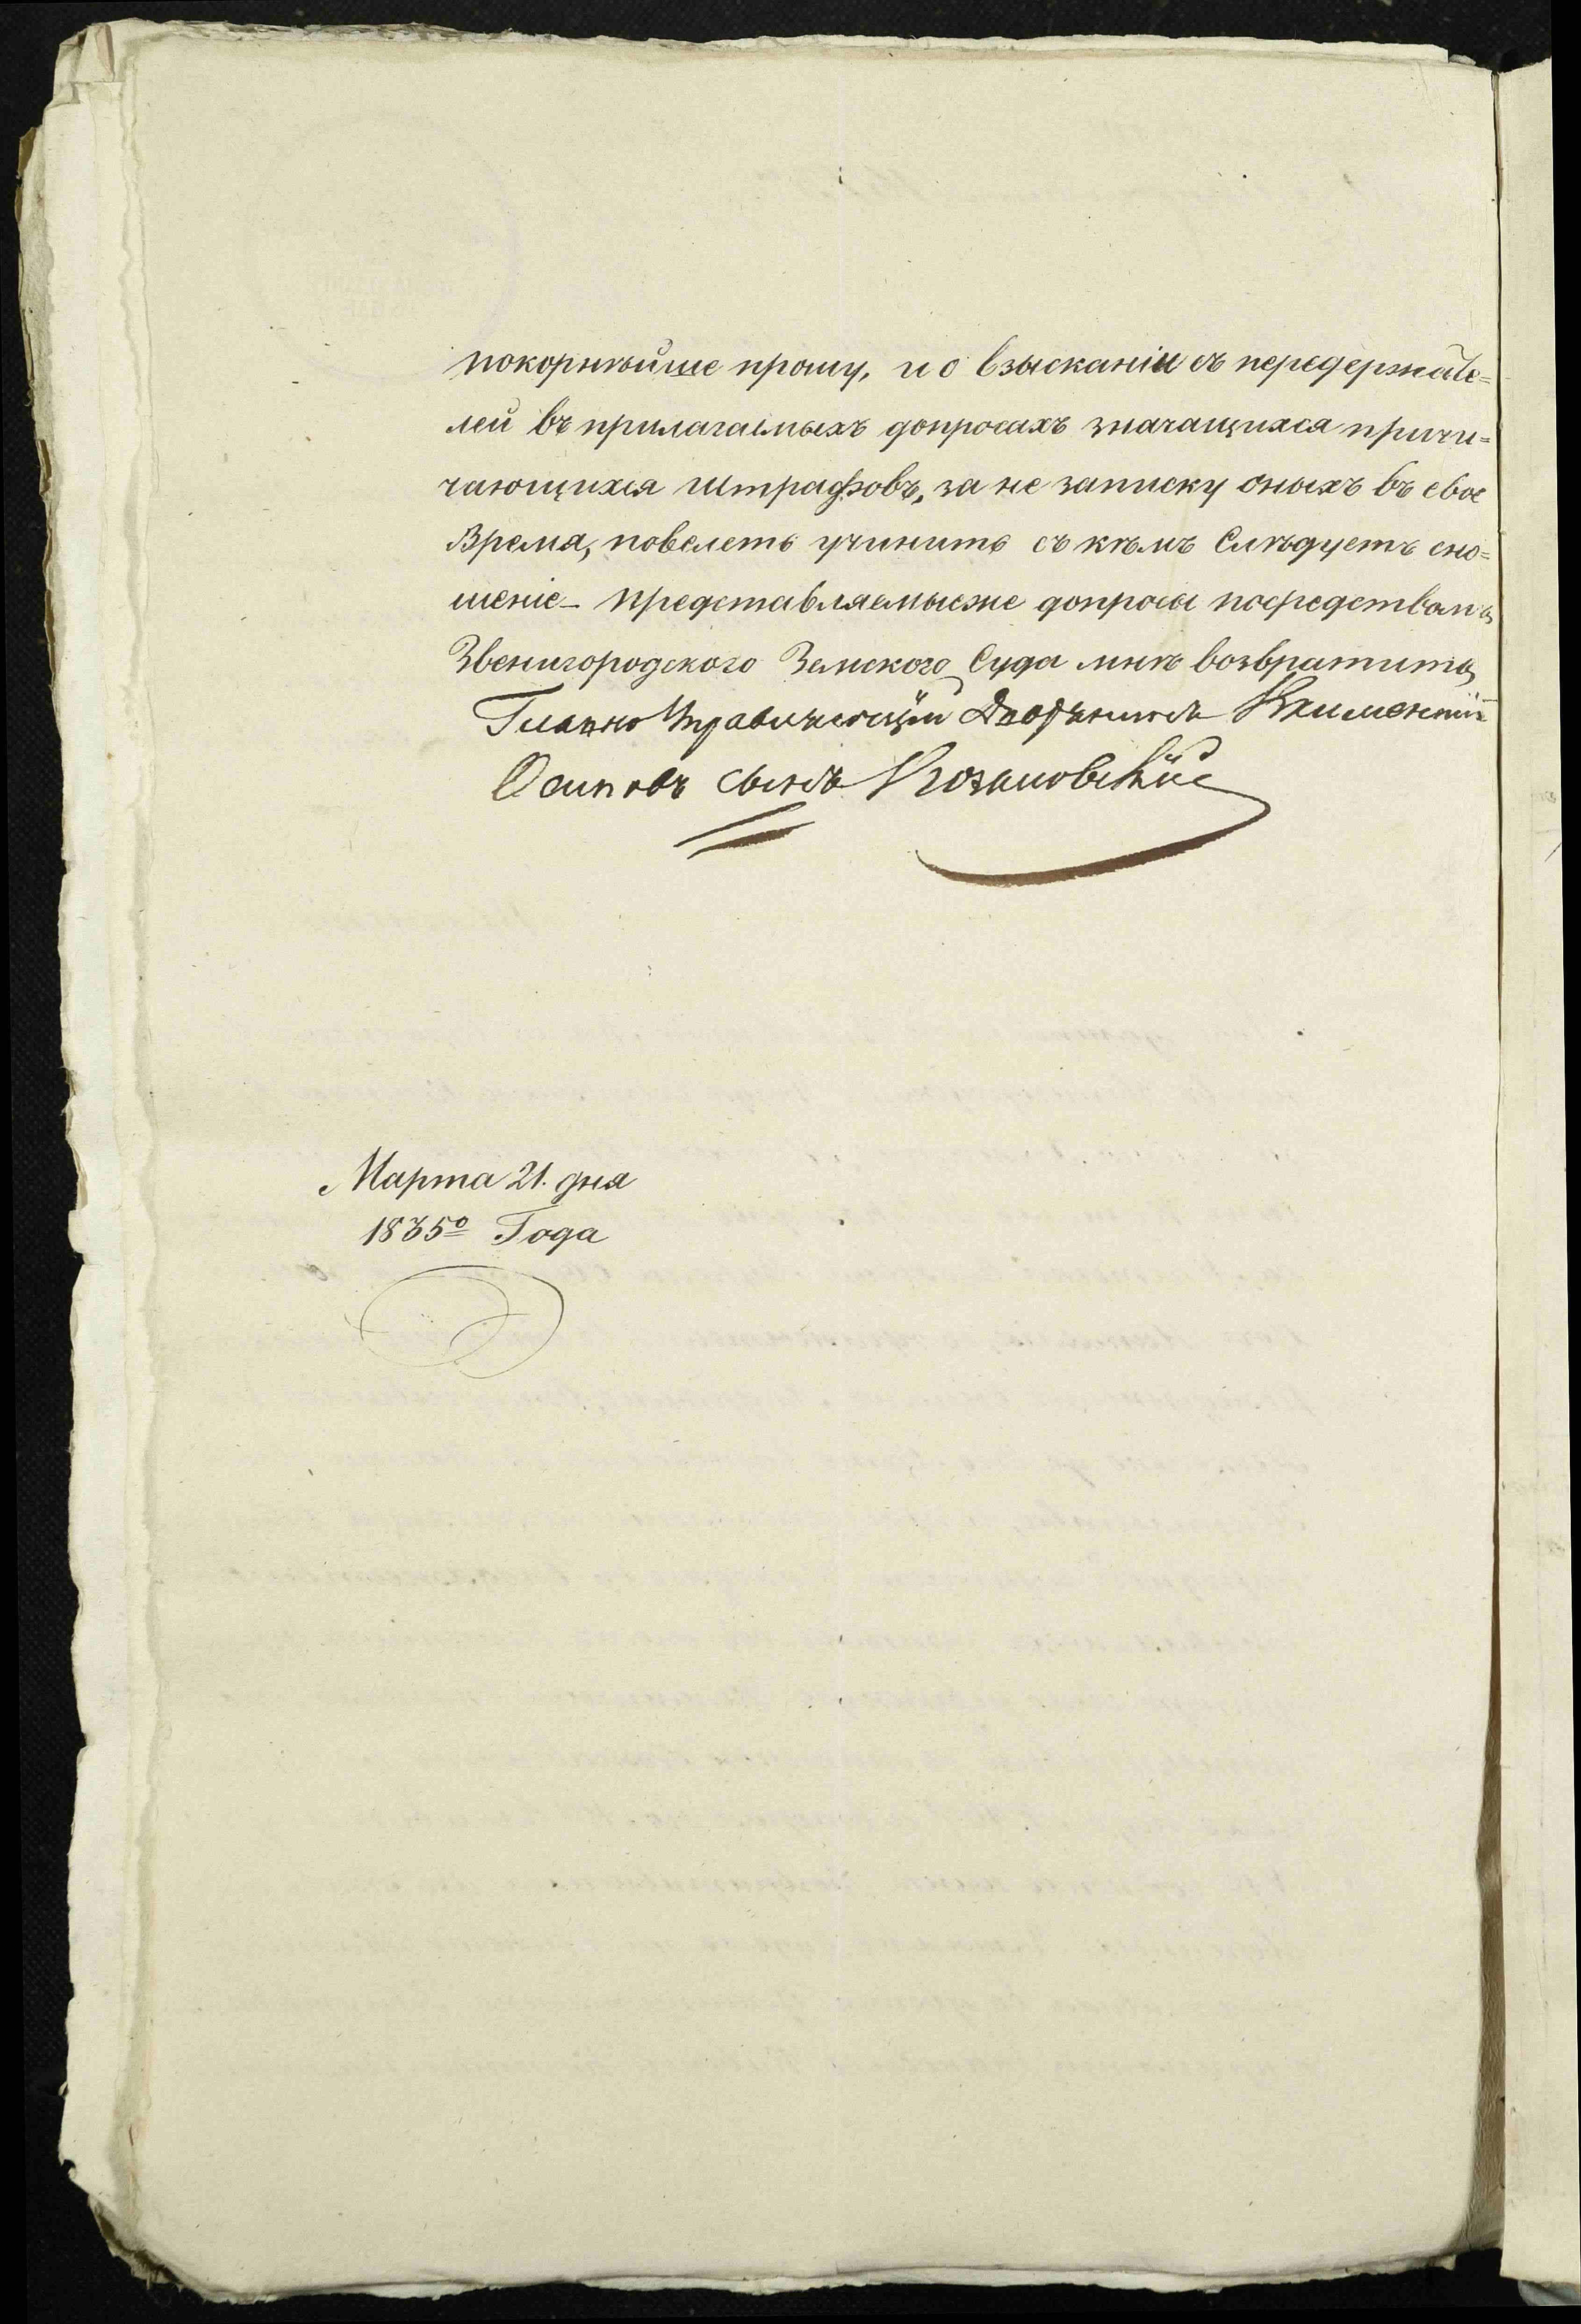 покорнѣйше прошу, и о взысканіи съ передержате=
лей въ прилагаемыхъ допросахъ значащихся причи=
тающихся штрафовъ, за не записку оныхъ въ свое
время, повелеть учинить съ кѣмъ слѣдуетъ сно=
шеніе – представляемые же допросы посредствомъ
Звенигородского Земского Суда мнѣ возвратить
Главно Управляющій Дворянинъ Климентій
Осиповъ сынъ Козловскій
Марта 21. дня
1835º Года